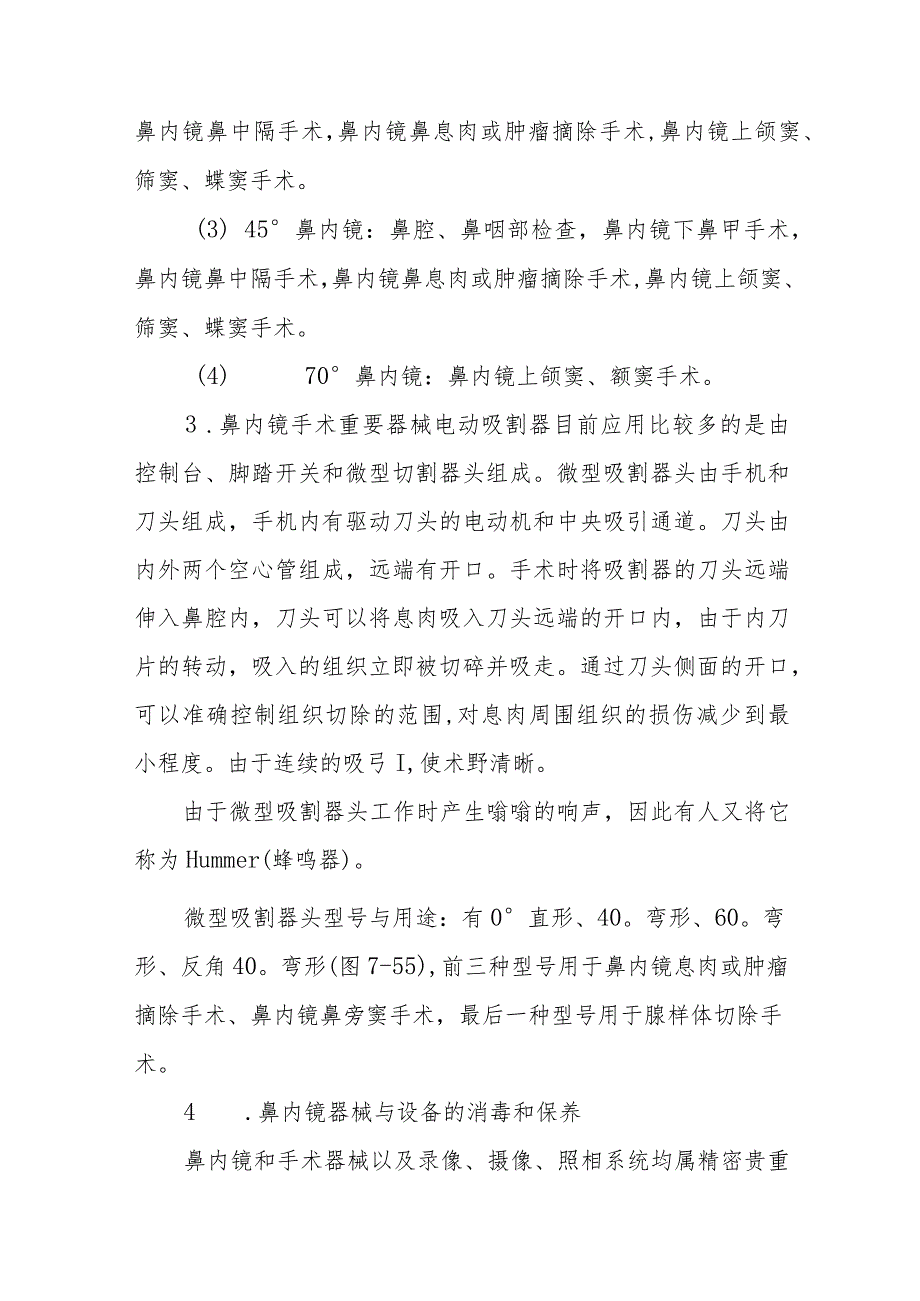 鼻内镜鼻中隔手术,鼻内镜鼻息肉或肿瘤摘除手术,鼻内镜上颌窦、
筛窦、蝶窦手术。
(3) 45°鼻内镜：鼻腔、鼻咽部检查，鼻内镜下鼻甲手术，
鼻内镜鼻中隔手术,鼻内镜鼻息肉或肿瘤摘除手术,鼻内镜上颌窦、
筛窦、蝶窦手术。
(4) 70°鼻内镜：鼻内镜上颌窦、额窦手术。
3 .鼻内镜手术重要器械电动吸割器目前应用比较多的是由
控制台、脚踏开关和微型切割器头组成。微型吸割器头由手机和
刀头组成，手机内有驱动刀头的电动机和中央吸引通道。刀头由
内外两个空心管组成，远端有开口。手术时将吸割器的刀头远端
伸入鼻腔内，刀头可以将息肉吸入刀头远端的开口内，由于内刀
片的转动，吸入的组织立即被切碎并吸走。通过刀头侧面的开口，
可以准确控制组织切除的范围,对息肉周围组织的损伤减少到最
小程度。由于连续的吸弓I,使术野清晰。
由于微型吸割器头工作时产生嗡嗡的响声，因此有人又将它
称为Hummer(蜂鸣器)。
微型吸割器头型号与用途：有0°直形、40。弯形、60。弯
形、反角40。弯形(图7-55),前三种型号用于鼻内镜息肉或肿瘤
摘除手术、鼻内镜鼻旁窦手术，最后一种型号用于腺样体切除手
术。
4 .鼻内镜器械与设备的消毒和保养
鼻内镜和手术器械以及录像、摄像、照相系统均属精密贵重